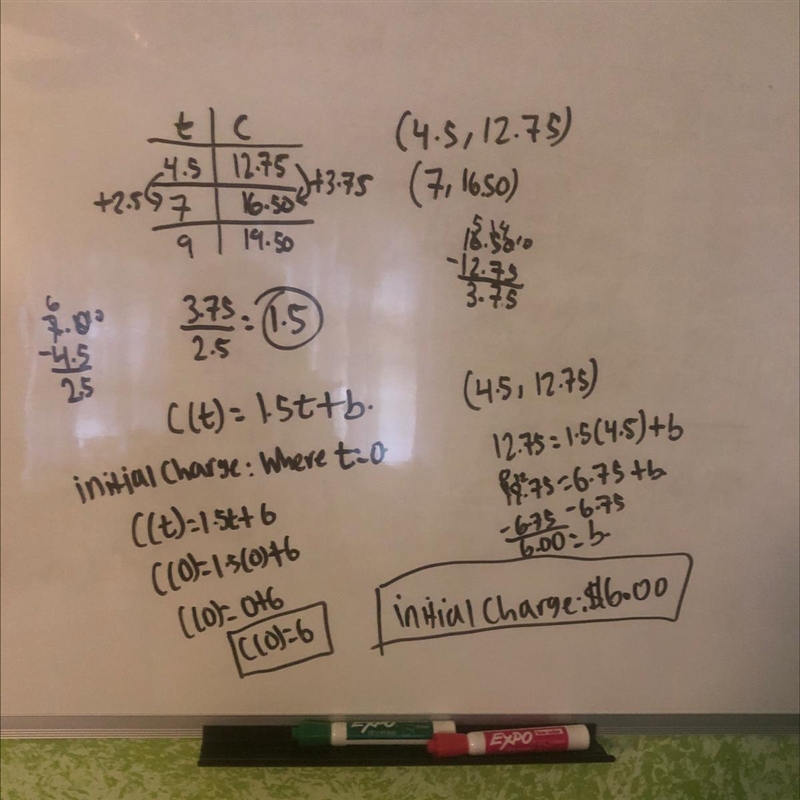 t C
4.5 12.75
+2.5 +3.75
7 16.50
9 19.50
(4.5, 12.75)
(7, 16.50)
16.50
-12.75
3.75
7.0
-4.5
2.5
3.75
2.5
= 1.5
C(t) = 1.5t + b.
initial Charge: Where t=0
C(t)=1.5t+6
C(0)=1.5(0)+6
C(0)=0+6
C(0)=6
(4.5, 12.75)
12.75=1.5(4.5)+b
12.75=6.75+b
-6.75 -6.75
6.00=b
initial Charge: $6.00
EXPO
EXPO